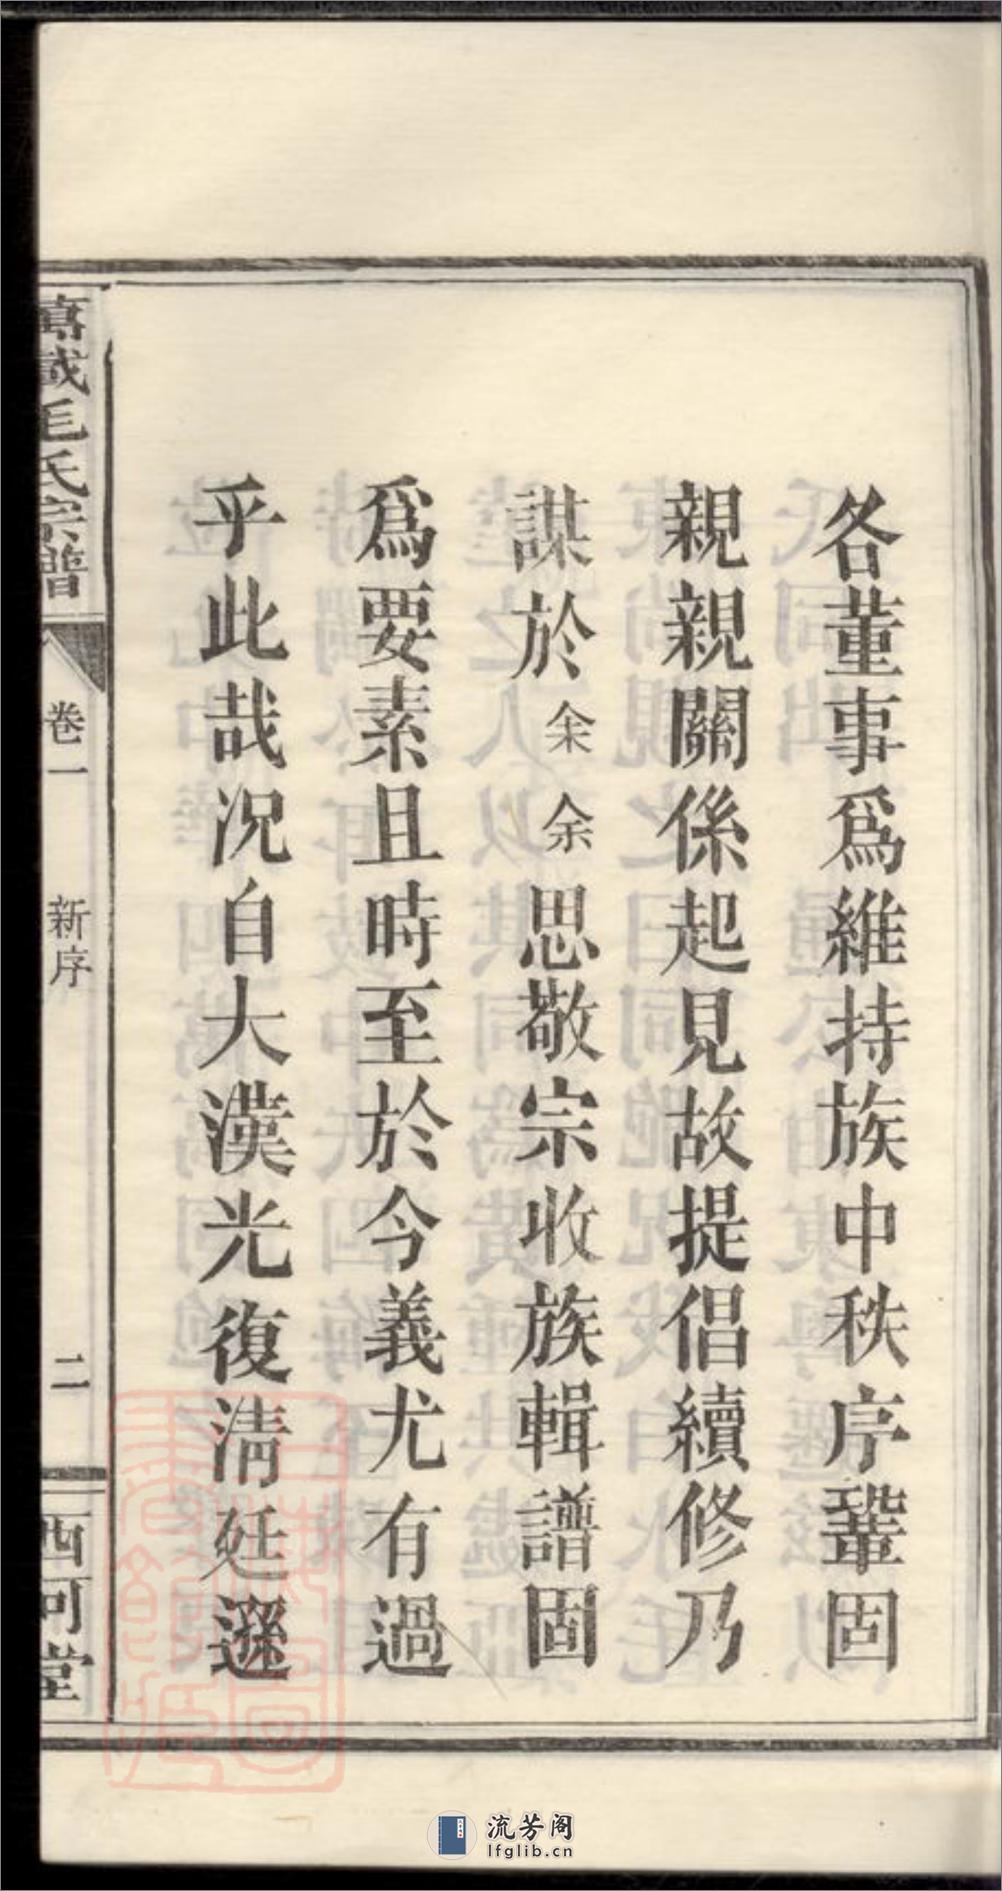 各董事爲維持族中秩序鞏固
親親關係起見故提倡續修乃
謀於余余思敬宗收族輯譜固
爲要素且時至於今義尤有過
乎此哉況自大漢光復清廷遜
萬載毛氏宗譜
卷一
新序
二
西河堂
流芳阁
lfglib.cn